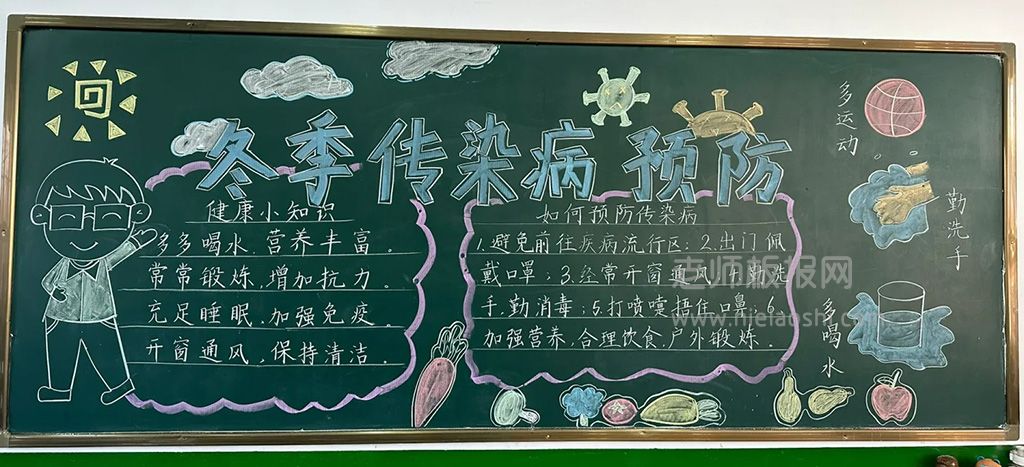 冬季传染病预防
健康小知识
多多喝水.营养丰富.
常常锻炼,增加抗力.
充足睡眠,加强免疫.
开窗通风,保持清洁.
如何预防传染病
1.避免前往疾病流行区;2.出门佩
戴口罩;3.经常开窗通风.4.勤洗
手,勤消毒;5.打喷嚏捂住口鼻;6.
加强营养,合理饮食,户外锻炼.
多运动
勤洗手
多喝水
老师板报网